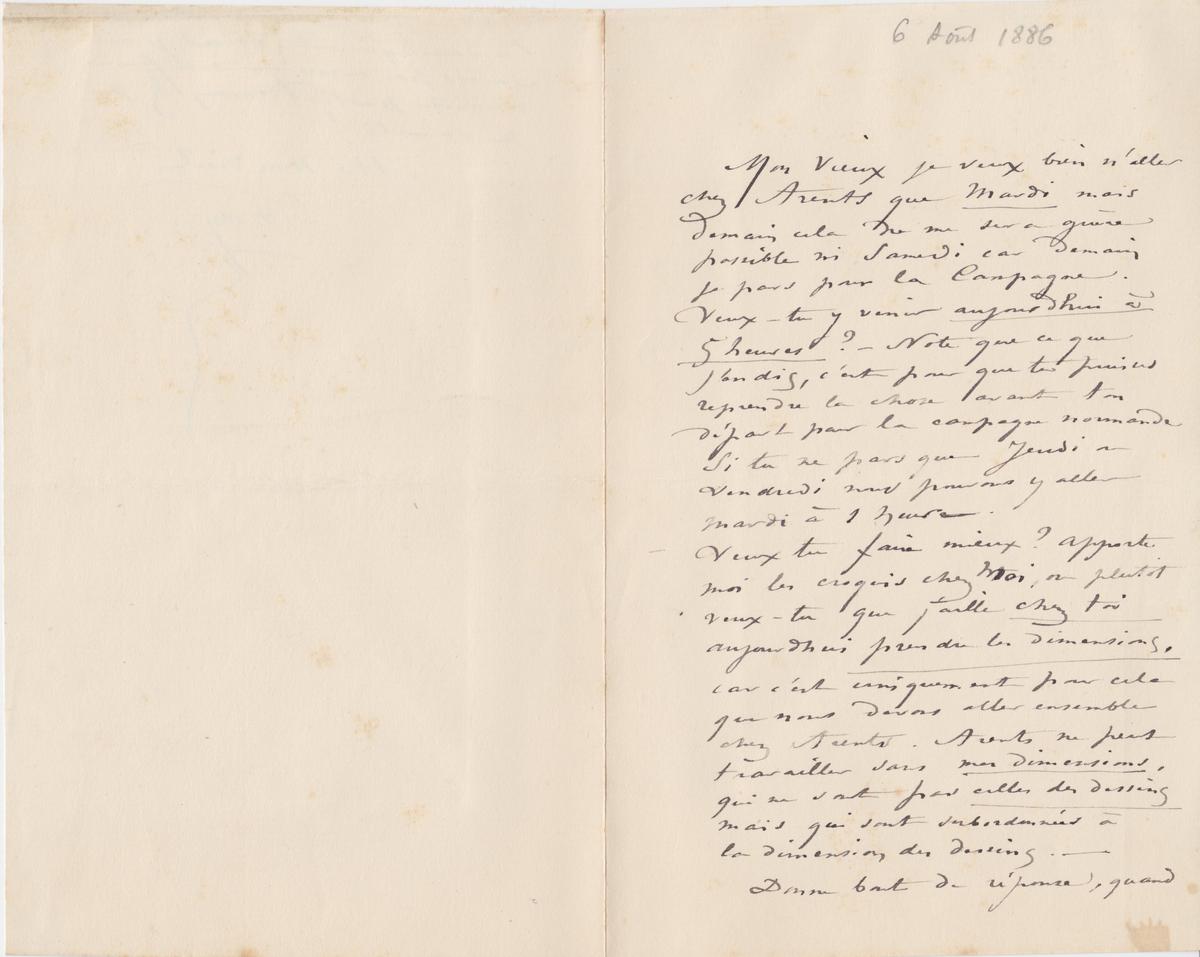 6 Août 1886
Mon Vieux je veux bien n'aller
chez Arents que Mardi mais
demain cela ne me sera guère
possible ni Samedi car demain
je pars pour la Campagne.
Veux-tu y venir aujourd'hui à
5 heures ? – Note que ce que
j'en dis, c'est pour que tu puisses
reprendre la chose avant ton
départ pour la campagne normande
Si tu ne pars que Jeudi ou
Vendredi nous pouvons y aller
mardi à 1 heure.
Veux tu faire mieux ? apporte
moi les croquis chez Moi, ou plutôt
veux-tu que j'aille chez toi
aujourdhui prendre les dimensions,
car c'est uniquement pour cela
que nous devons aller ensemble
chez Arents. Arents ne peut
travailler sans mes dimensions,
qui ne sont pas celles des dessins
mais qui sont subordonnées à
la dimension des dessins. —
Donne bout de réponse, quand